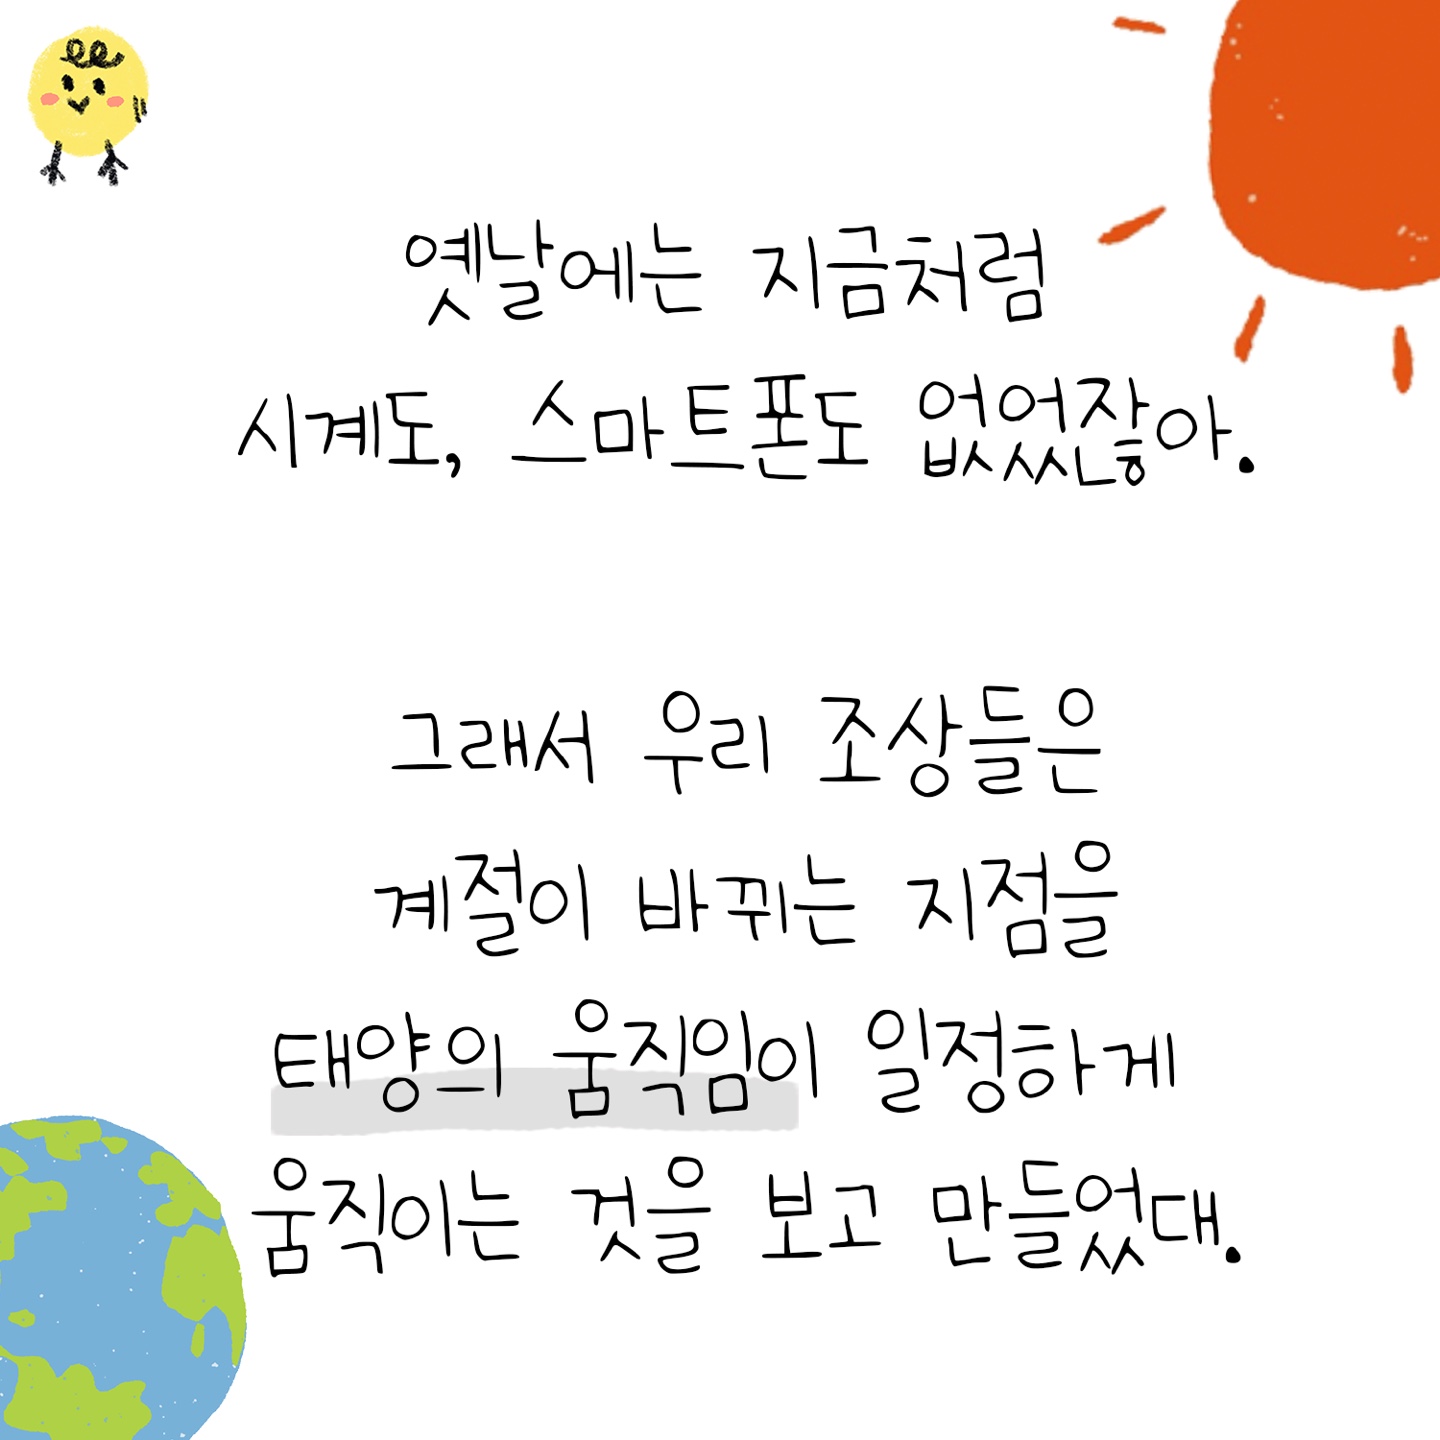 옛날에는 지금처럼
시계도, 스마트폰도 없었잖아.
그래서 우리 조상들은
계절이 바뀌는 지점을
태양의 움직임이 일정하게
움직이는 것을 보고 만들었대.